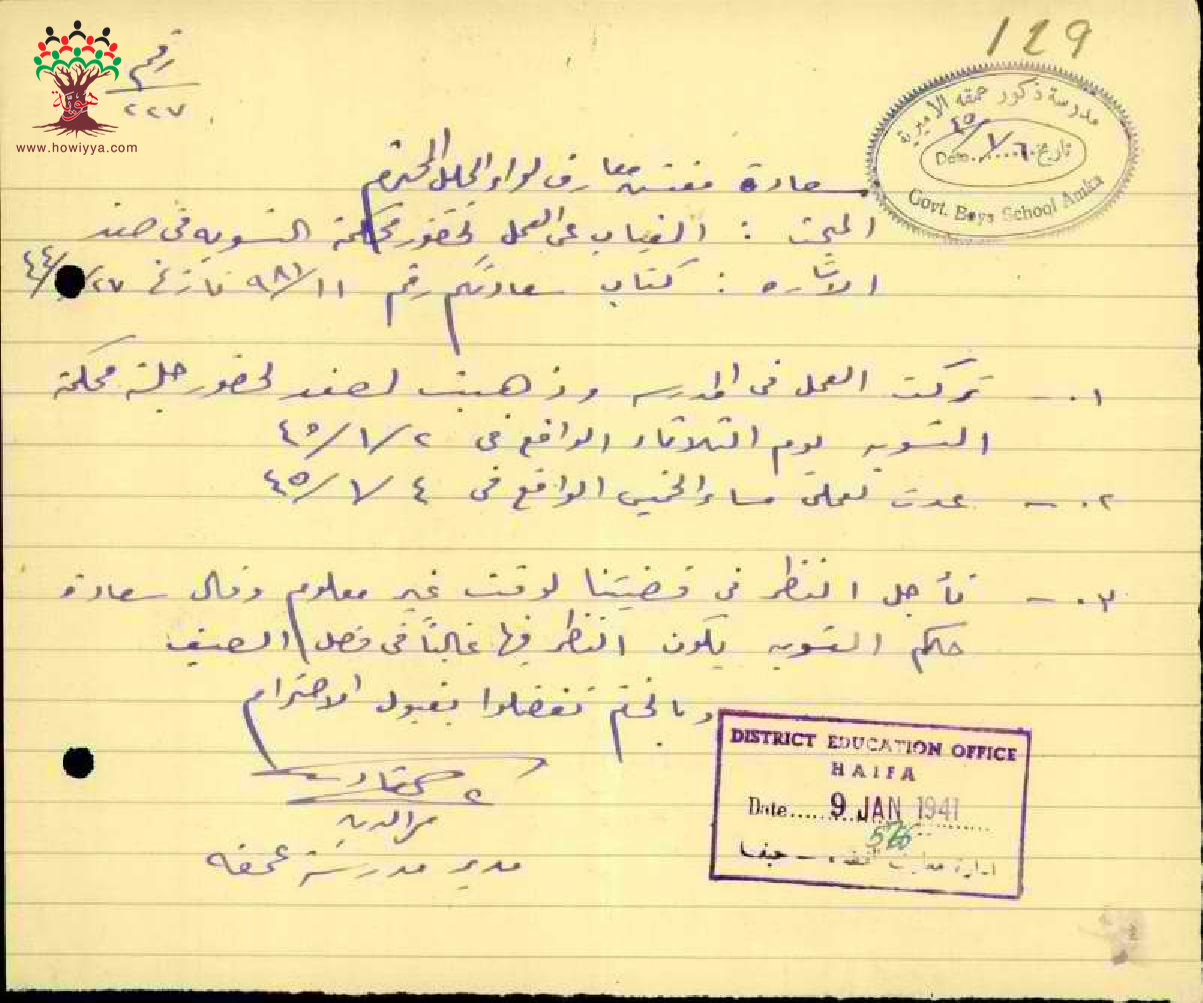 129
رقم
٢٢٧
www.howiyya.com
مدرسة ذكور عمقه الاميرية
Date تاريخ ٦/١/٤٥
Govt. Boys School Amka
سعادة مفتش معارف لواء الجليل المحترم
المبحث : الغياب عن العمل لحضور محكمة التسويه في صفد
الاشاره : كتاب سعادتكم رقم ٩٨١/١١ تاريخ ٢٧/ /٤٤
١. — تركت العمل في المدرسه وذهبت لصفد لحضور جلسة محكمة
التسويه يوم الثلاثاء الواقع في ٢/١/٤٥
٢. — عدت لعملي مساء الخميس الواقع في ٤/١/٤٥
٣. — تأجل النظر في قضيتنا لوقت غير معلوم وقال سعادة
حاكم التسويه يكون النظر فيها غالبًا في فصل الصيف
وبالختم تفضلوا بقبول الاحترام
مدير مدرسة عمقه
DISTRICT EDUCATION OFFICE
HAIFA
Date 9 JAN 1941
576
ادارة معارف اللواء — حيفا